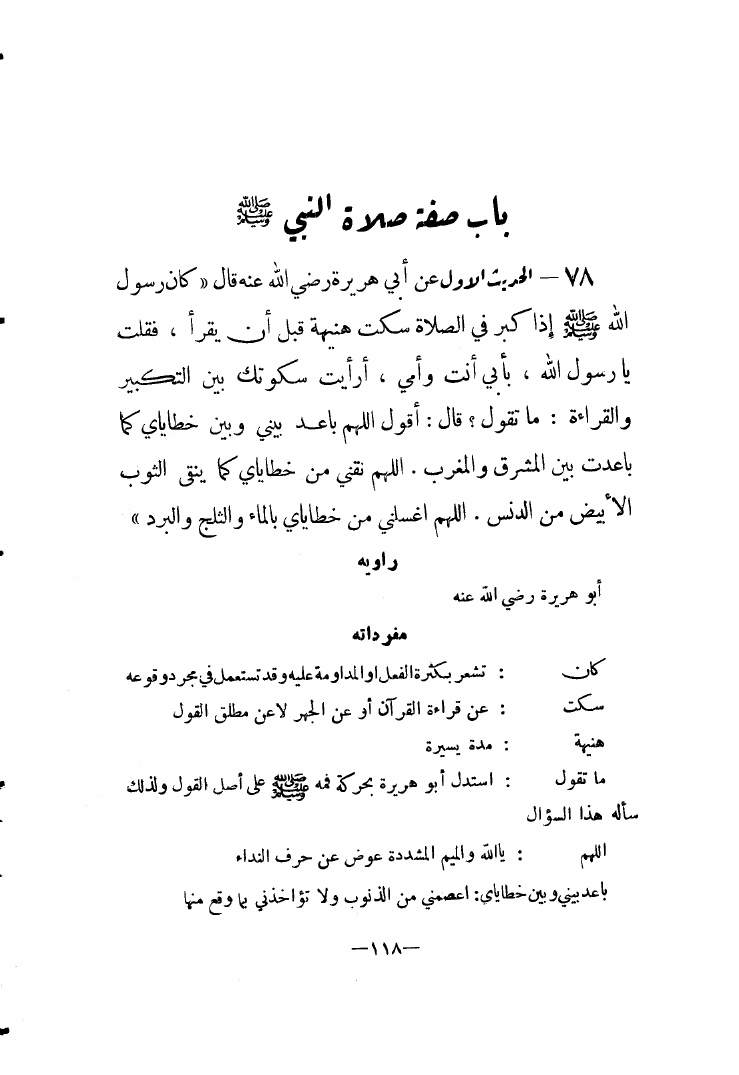 باب صفة صلاة النبي ﷺ
٧٨ – الحديث الاول عن أبي هريرة رضي الله عنه قال « كان رسول
الله ﷺ إذا كبر في الصلاة سكت هنيهة قبل أن يقرأ ، فقلت
يا رسول الله ، بأبي أنت وأمي ، أرأيت سكوتك بين التكبير
والقراءة : ما تقول ؟ قال : أقول اللهم باعد بيني وبين خطاياي كما
باعدت بين المشرق والمغرب . اللهم نقني من خطاياي كما ينقى الثوب
الأبيض من الدنس . اللهم اغسلني من خطاياي بالماء والثلج والبرد »
راويه
أبو هريرة رضي الله عنه
مفرداته
كان : تشعر بكثرة الفعل او المداومة عليه وقد تستعمل في مجرد وقوعه
سكت : عن قراءة القرآن أو عن الجهر لا عن مطلق القول
هنيهة : مدة يسيرة
ما تقول : استدل أبو هريرة بحركة فمه ﷺ على أصل القول ولذلك
سأله هذا السؤال
اللهم : يا الله والميم المشددة عوض عن حرف النداء
باعد بيني وبين خطاياي : اعصمني من الذنوب ولا تؤاخذني بما وقع منها
—١١٨—